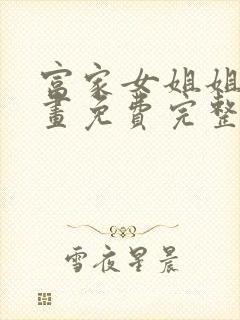 富家女姐姐
畫免費完整
雪夜星晨